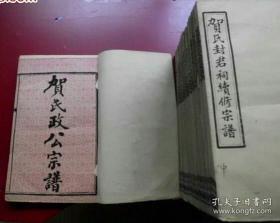 贺氏政公宗譜
贺氏封君祠續修宗譜
孔夫子旧书网